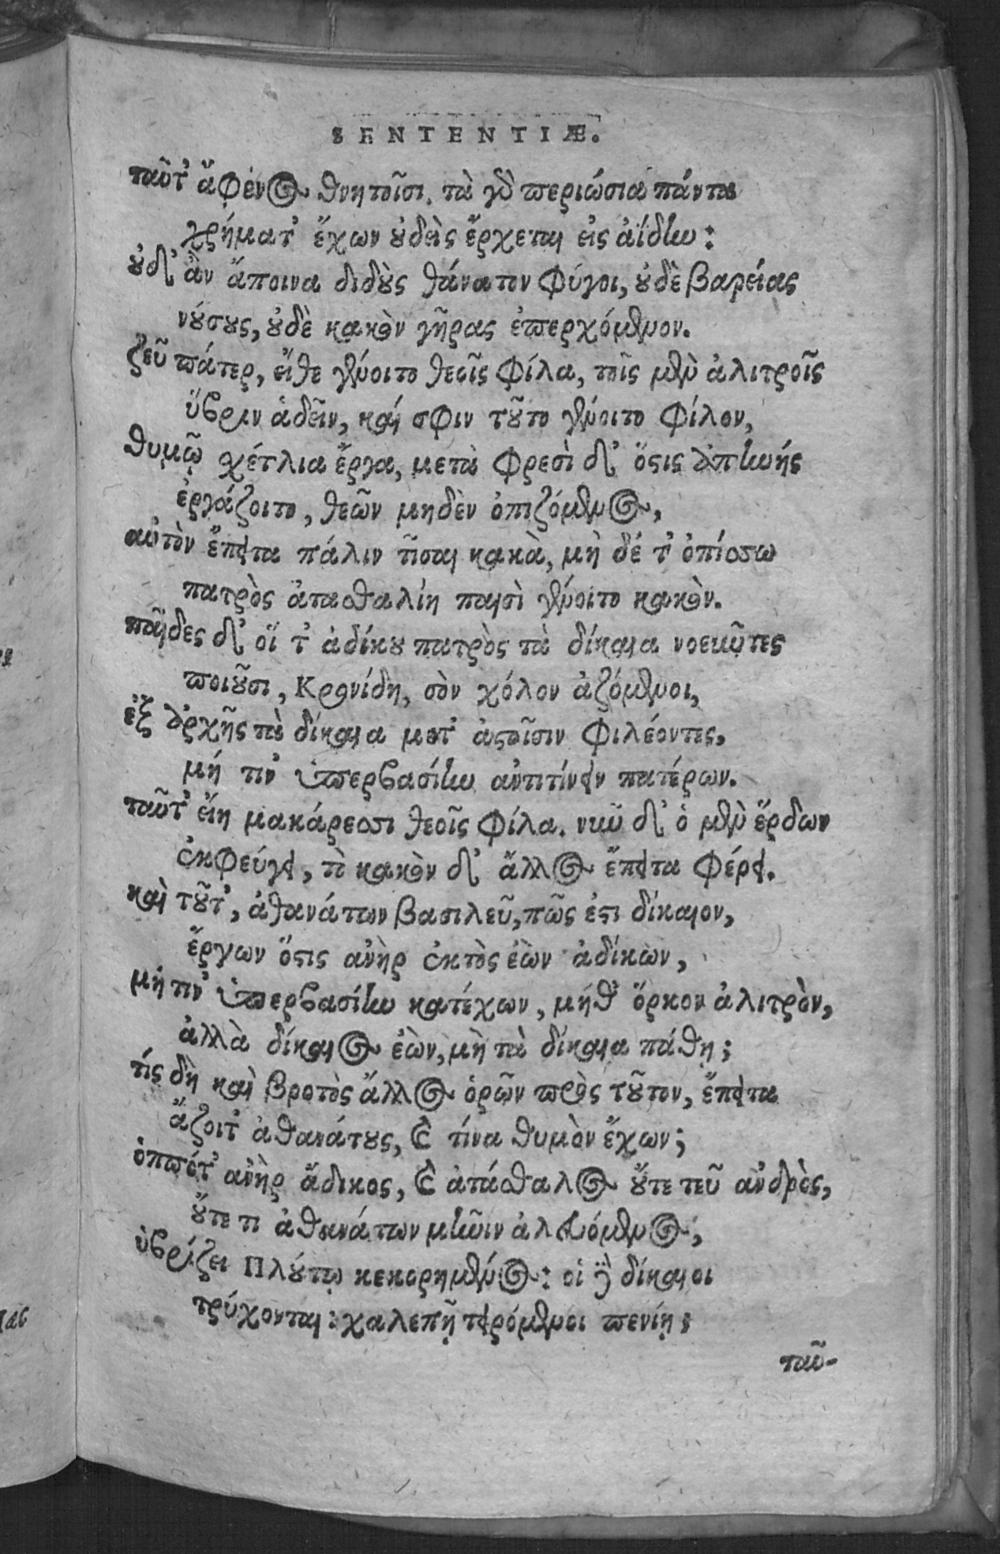 SENTENTIÆ.
ταῦτ' ἄφενος θνητοῖσι. τὰ γὸ περιώσια πάντα
χρήματ' ἔχων οὐδεὶς ἔρχεται εἰς ἀίδην:
οὐδ' ἂν ἄποινα διδοὺς θάνατον φύγοι, οὐδὲ βαρείας
νούσους, οὐδὲ κακὸν γῆρας ἐπερχόμενον.
ζεῦ πάτερ, εἴθε γένοιτο θεοῖς φίλα, τοῖς μὲν ἀλιτροῖς
ὕβριν ἁδεῖν, καί σφιν τοῦτο γένοιτο φίλον,
θυμῷ σχέτλια ἔργα, μετὰ φρεσὶ δ' ὅστις ἀπηνής
ἐργάζοιτο, θεῶν μηδὲν ὀπιζόμενος,
αὐτὸν ἔπειτα πάλιν τῖσαι κακὰ, μὴ δέ τ' ὀπίσσω
πατρὸς ἀτασθαλίη παισὶ γένοιτο κακόν.
παῖδες δ' οἵ τ' ἀδίκου πατρὸς τὰ δίκαια νοεῦντες
ποιοῦσι, Κρονίδη, σὸν χόλον ἁζόμενοι,
ἐξ ἀρχῆς τὰ δίκαια μετ' ἀστοῖσιν φιλέοντες,
μή τιν' ὑπερβασίην ἀντιτίνειν πατέρων.
ταῦτ' εἴη μακάρεσσι θεοῖς φίλα. νῦν δ' ὁ μὲν ἔρδων
ἐκφεύγει, τὸ κακὸν δ' ἄλλος ἔπειτα φέρει.
καὶ τοῦτ', ἀθανάτων βασιλεῦ, πῶς ἐστι δίκαιον,
ἔργων ὅστις ἀνὴρ ἐκτὸς ἐὼν ἀδίκων,
μή τιν' ὑπερβασίην κατέχων, μήθ' ὅρκον ἀλιτρὸν,
ἀλλὰ δίκαιος ἐὼν, μὴ τὰ δίκαια πάθῃ;
τίς δὴ καὶ βροτὸς ἄλλος ὁρῶν πρὸς τοῦτον, ἔπειτα
ἅζοιτ' ἀθανάτους, καὶ τίνα θυμὸν ἔχων;
ὁππότ' ἀνὴρ ἄδικος, καὶ ἀτάσθαλος οὔτε τεῦ ἀνδρὸς,
οὔτε τι ἀθανάτων μῆνιν ἀλευόμενος,
ὑβρίζει Πλούτῳ κεκορημένος: οἱ δὲ δίκαιοι
τρύχονται: χαλεπῇ τειρόμενοι πενίῃ;
ταῦ-